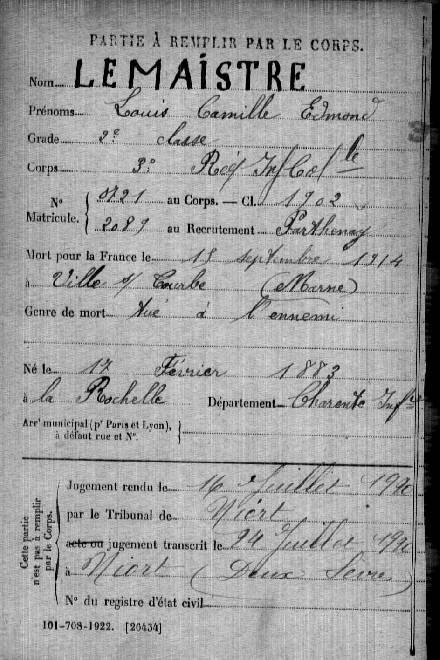 PARTIE À REMPLIR PAR LE CORPS.
Nom LEMAISTRE
Prénoms Louis Camille Edmond
Grade 2e classe
Corps 3e Rég Inf Col le
N° Matricule. { 0721 au Corps. — Cl. 1902
2089 au Recrutement Parthenay
Mort pour la France le 15 septembre 1914
à Ville s/ Tourbe (Marne)
Genre de mort tué à l'ennemi
Né le 17 Février 1883
à la Rochelle Département Charente Infre
Arrt municipal (pr Paris et Lyon), à défaut rue et N°. {
Cette partie n'est pas à remplir par le Corps.
Jugement rendu le 16 Juillet 1920
par le Tribunal de Niort
acte ou jugement transcrit le 24 Juillet 1920
à Niort (Deux Sevre)
N° du registre d'état civil
101-708-1922. [20434]